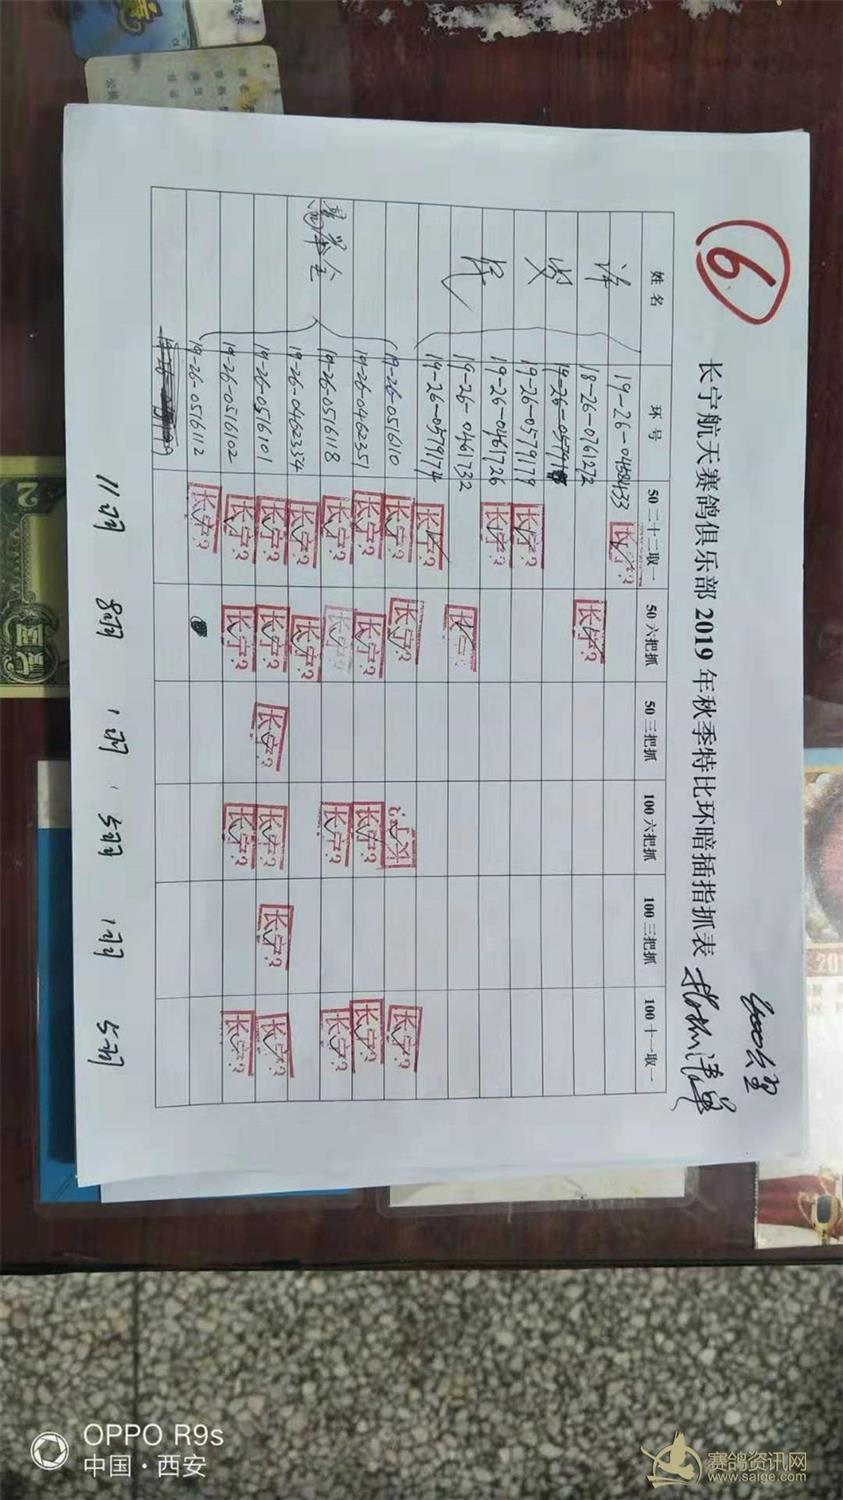 6
400公里
长宁航天赛鸽俱乐部2019年秋季特比环暗插指抓表 指抓清单
姓名 环号 50二十二取一 50六把抓 50三把抓 100六把抓 100三把抓 100十一取一
许 19-26-0458433 长宁?
18-26-0761272 长宁?
19-26-05791
19-26-0579179 长宁?
民 19-26-0461726 长宁?
19-26-0461732 长宁?
19-26-0579174 长宁?
19-26-0516110 长宁? 长宁? 长宁? 长宁?
19-26-0462351 长宁? 长宁? 长宁? 长宁?
19-26-0516118 长宁? 长宁? 长宁? 长宁?
19-26-0462354 长宁? 长宁?
19-26-0516101 长宁? 长宁? 长宁? 长宁? 长宁? 长宁?
19-26-0516102 长宁? 长宁? 长宁? 长宁?
19-26-0516112 长宁?
11羽 8羽 1羽 5羽 1羽 5羽
2
OPPO R9s
中国·西安
赛鸽资讯网
www.saige.com